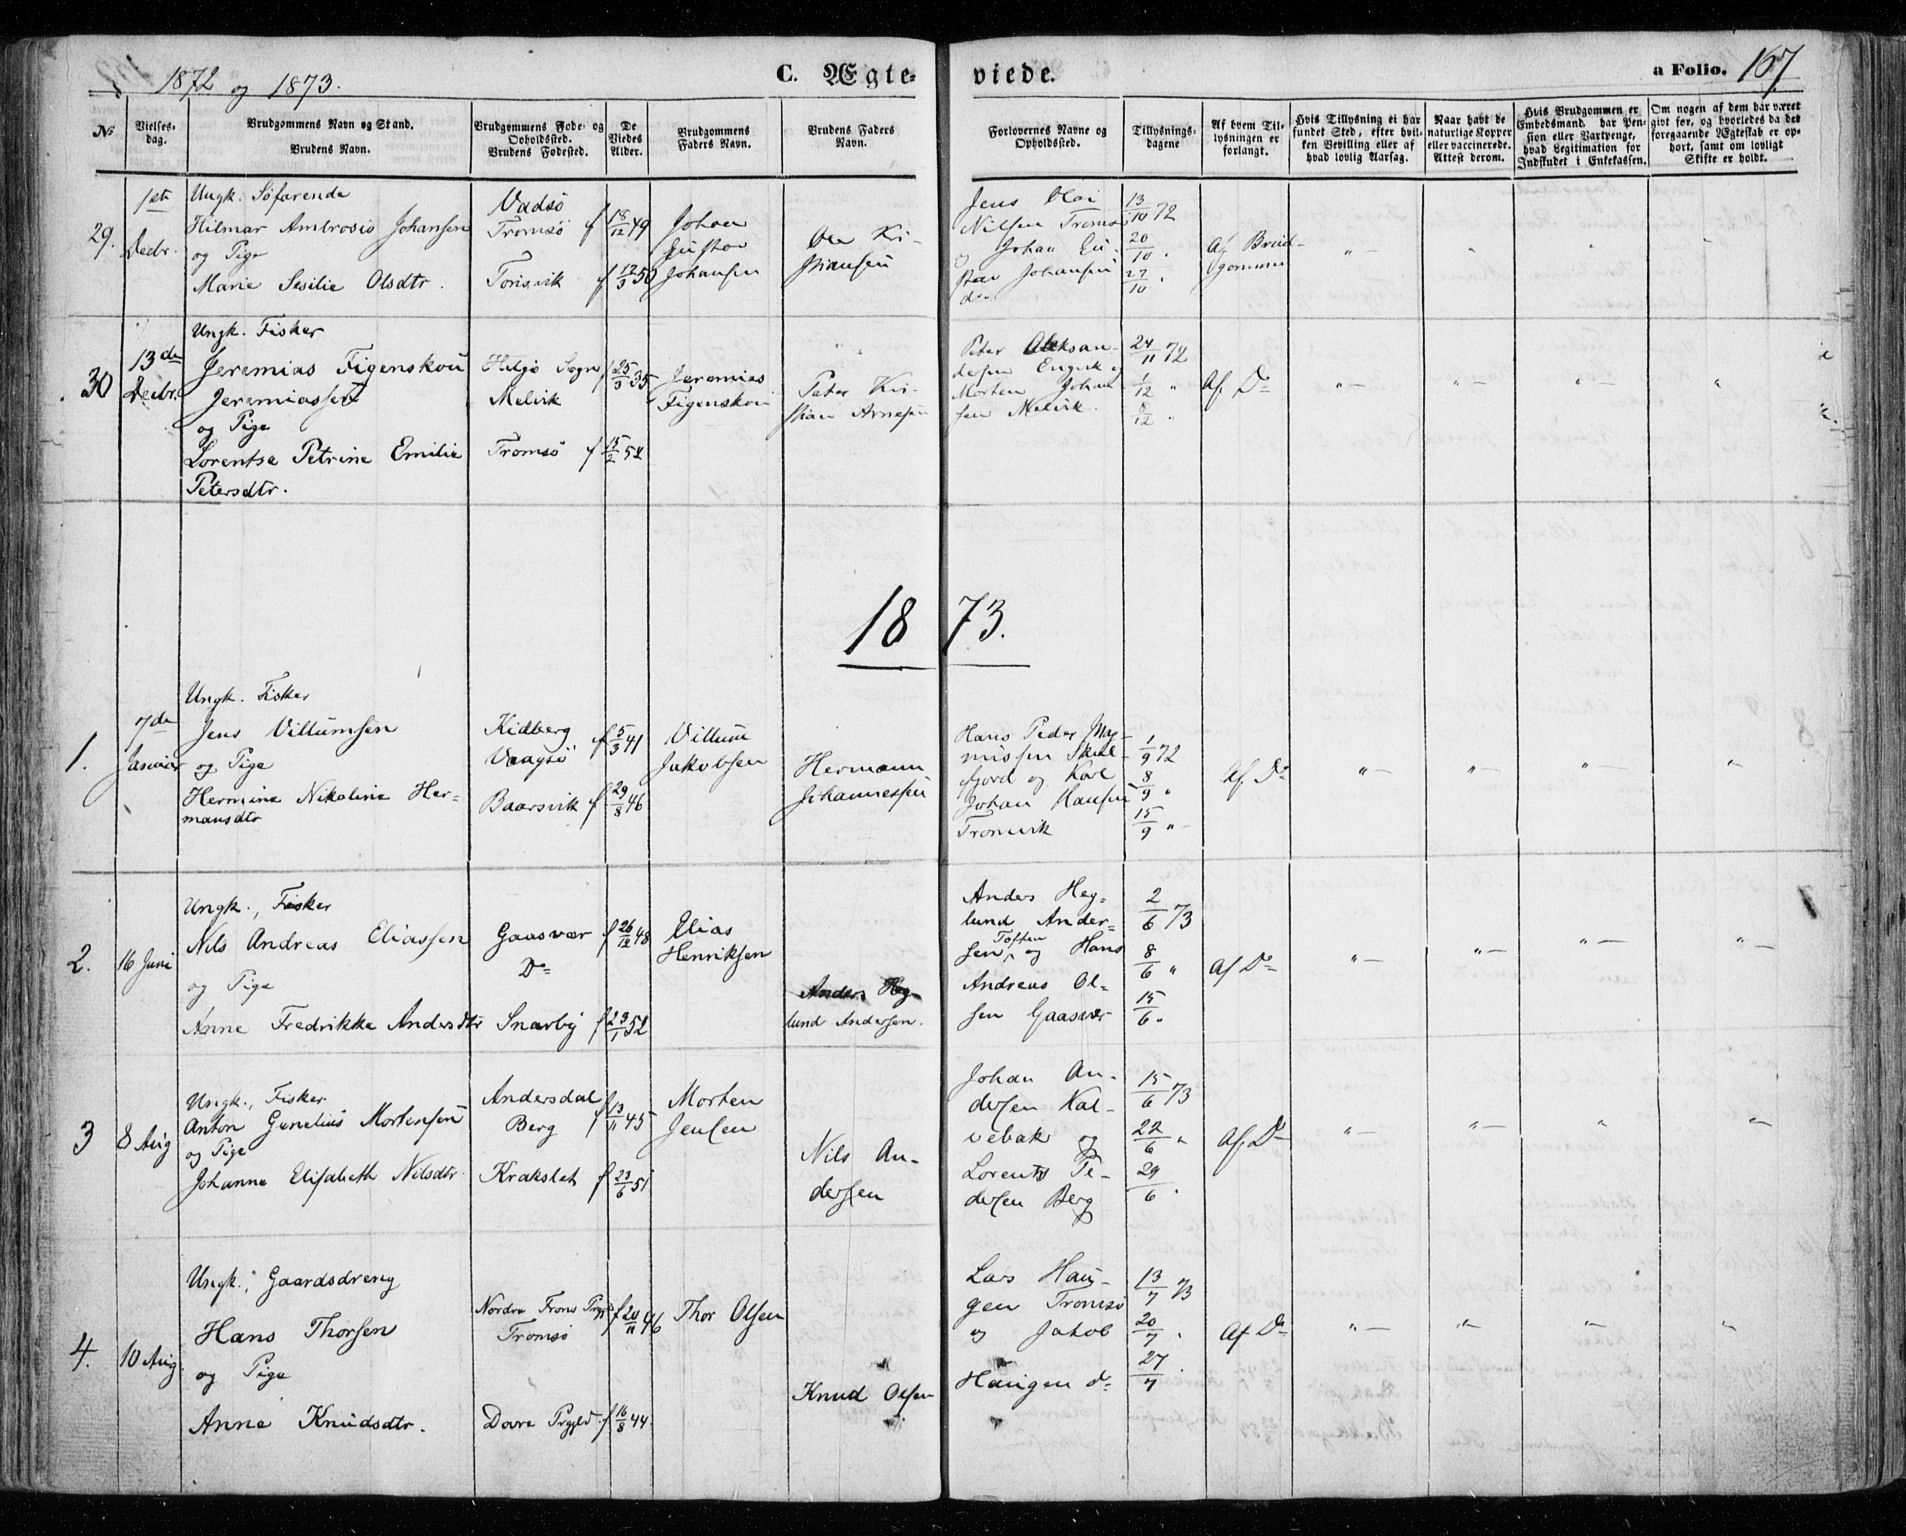 1872 og 1873.
C. Ægte-
viede.
a Folio. 167
No
Vielses-
dag.
Brudgommens Navn og Stand.
Brudens Navn.
Brudgommens Føde- og
Opholdssted.
Brudens Fødested.
De
Viedes
Alder.
Brudgommens
Faders Navn.
Brudens Faders
Navn.
Forlovernes Navne og
Opholdssted.
Tillysnings-
dagene
Af hvem Til-
lysningen er
forlangt.
Hvis Tillysning ei har
fundet Sted, efter hvil-
ken Bevilling eller af
hvad lovlig Aarsag.
Naar havt de
naturlige Kopper
eller vaccinerede.
Attest derom.
Hvis Brudgommen er
Embedsmand, har Pen-
sion eller Vartpenge,
hvad Legitimation for
Indskudet i Enkekassen.
Om nogen af dem har været
givt før, og hvorledes da det
foregaaende Ægteskab er op-
hørt, samt om lovligt
Skifte er holdt.
29.
1ste
Decbr.
Ungk. Søfarende
Hilmar Ambrosio Johansen
og Pige
Marie Sesilie Olsdtr.
Vadsø
Tromsø
Tonsvik
f 18/12 49
f 12/3 50
Johan
Gustav
Johansen
Ole Kri-
stiansen
Jens Olai
Nilsen Tromsø
og Johan Gu-
stav Johansen
do
13/10 72
20/10 "
27/10 "
Af Brud-
gommen
"
"
"
"
30
13de
Decbr.
Ungk. Fisker
Jeremias Figenskou
Jeremiassen
og Pige
Lorentse Petrine Emilie
Petersdtr.
Helgø Sogn
Melvik
Tromsø
f 25/3 35
f 15/2 52
Jeremias
Figenskou
Peter Kri-
stian Arnesen
Peter Aleksan-
dersen Engvik og
Morten Johan
sen Melvik.
24/11 72
1/12 "
8/12 "
Af Do
"—
"—
"—
"
1873.
1.
7de
Januar
Ungk. Fisker
Jens Villumsen
og Pige
Hermine Nikoline Her-
mansdtr
Kidberg
Vaagsø
Baarsvik
f 5/3 41
f 29/8 46
Villum
Jakobsen
Hermann
Johannessen
Hans Peder Mag-
nussen Skul-
fjord og Karl
Johan Hansen
Tromvik
1/9 72
8/9 "
15/9 "
Af Do
"—
"—
"—
"—
2.
16 Juni
Ungk., Fisker
Nils Andreas Eliassen
og Pige
Anne Fredrikke Andersdtr
Gaasvær
Do
Snarby
f 26/12 48
f 23/1 52
Elias
Henriksen
Anders Heg-
lund Andersen.
Anders Heg-
lund Ander-
sen Toften og Hans
Andreas Ol-
sen Gaasvær
2/6 73
8/6 "
15/6 "
Af Do
"—
"—
"—
"—
3
8 Aug
Ungk., Fisker
Anton Genelius Mortensen
og Pige
Johanna Elisabeth Nilsdtr.
Andersdal
Berg
Krakslet
f 13/11 45
f 23/6 51
Morten
Jensen
Nils An-
dersen
Johan An-
dersen Kal-
vebak og
Lorents Pe-
dersen Berg
15/6 73
22/6 "
29/6 "
Af Do
"—
"—
"
"—
4.
10 Aug
Ungk., Gaardsdreng
Hans Thorsen
og Pige
Anne Knudsdtr.
Nordre Frons Prgjd
Tromsø
Dovre Prgjld.
f 20/11 46
f 16/8 44
Thor Olsen
Knud Olsen
Lars Hau-
gen Tromsø
og Jakob
Haugen do
13/7 73
20/7 "
27/7 "
Af Do
"—
"—
"—
"—